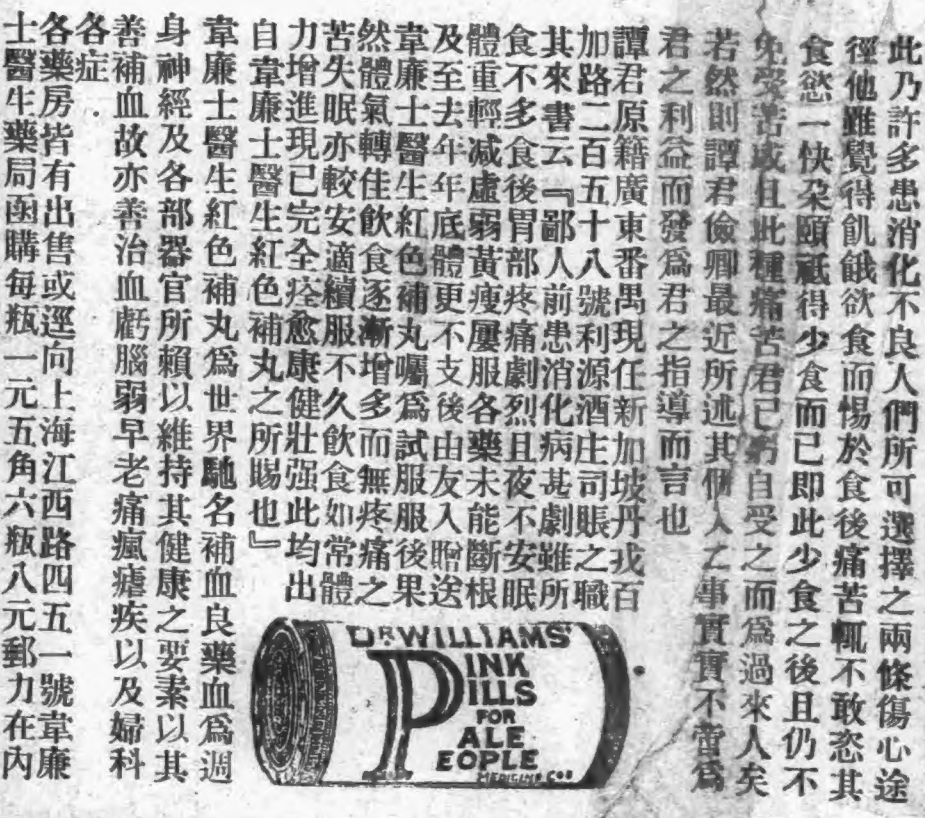 此乃許多患消化不良人們所可選擇之兩條傷心途
徑他雖覺得飢餓欲食而惕於食後痛苦輒不敢恣其
食慾一快朶頤祗得少食而已即此少食之後且仍不
免受苦或且此種痛苦君已躬自受之而爲過來人矣
若然則譚君儉卿最近所述其個人之事實實不啻爲
君之利益而發爲君之指導而言也
譚君原籍廣東番禺現任新加坡丹戎百
加路二百五十八號利源酒庄司賬之職
其來書云『鄙人前患消化病甚劇雖所
食不多食後胃部疼痛劇烈且夜不安眠
體重輕减虛弱黃瘦屢服各藥未能斷根
及至去年年底體更不支後由友人贈送
韋廉士醫生紅色補丸囑爲試服服後果
然體氣轉佳飲食逐漸增多而無疼痛之
苦失眠亦較安適續服不久飲食如常體
力增進現已完全痊愈康健壯强此均出
自韋廉士醫生紅色補丸之所賜也』
韋廉士醫生紅色補丸爲世界馳名補血良藥血爲週
身神經及各部器官所賴以維持其健康之要素以其
善補血故亦善治血虧腦弱早老痛瘋瘧疾以及婦科
各症
各藥房皆有出售或逕向上海江西路四五一號韋廉
士醫生藥局函購每瓶一元五角六瓶八元郵力在內
DR. WILLIAMS'
PINK
PILLS
FOR
PALE
PEOPLE
MEDICINE Co